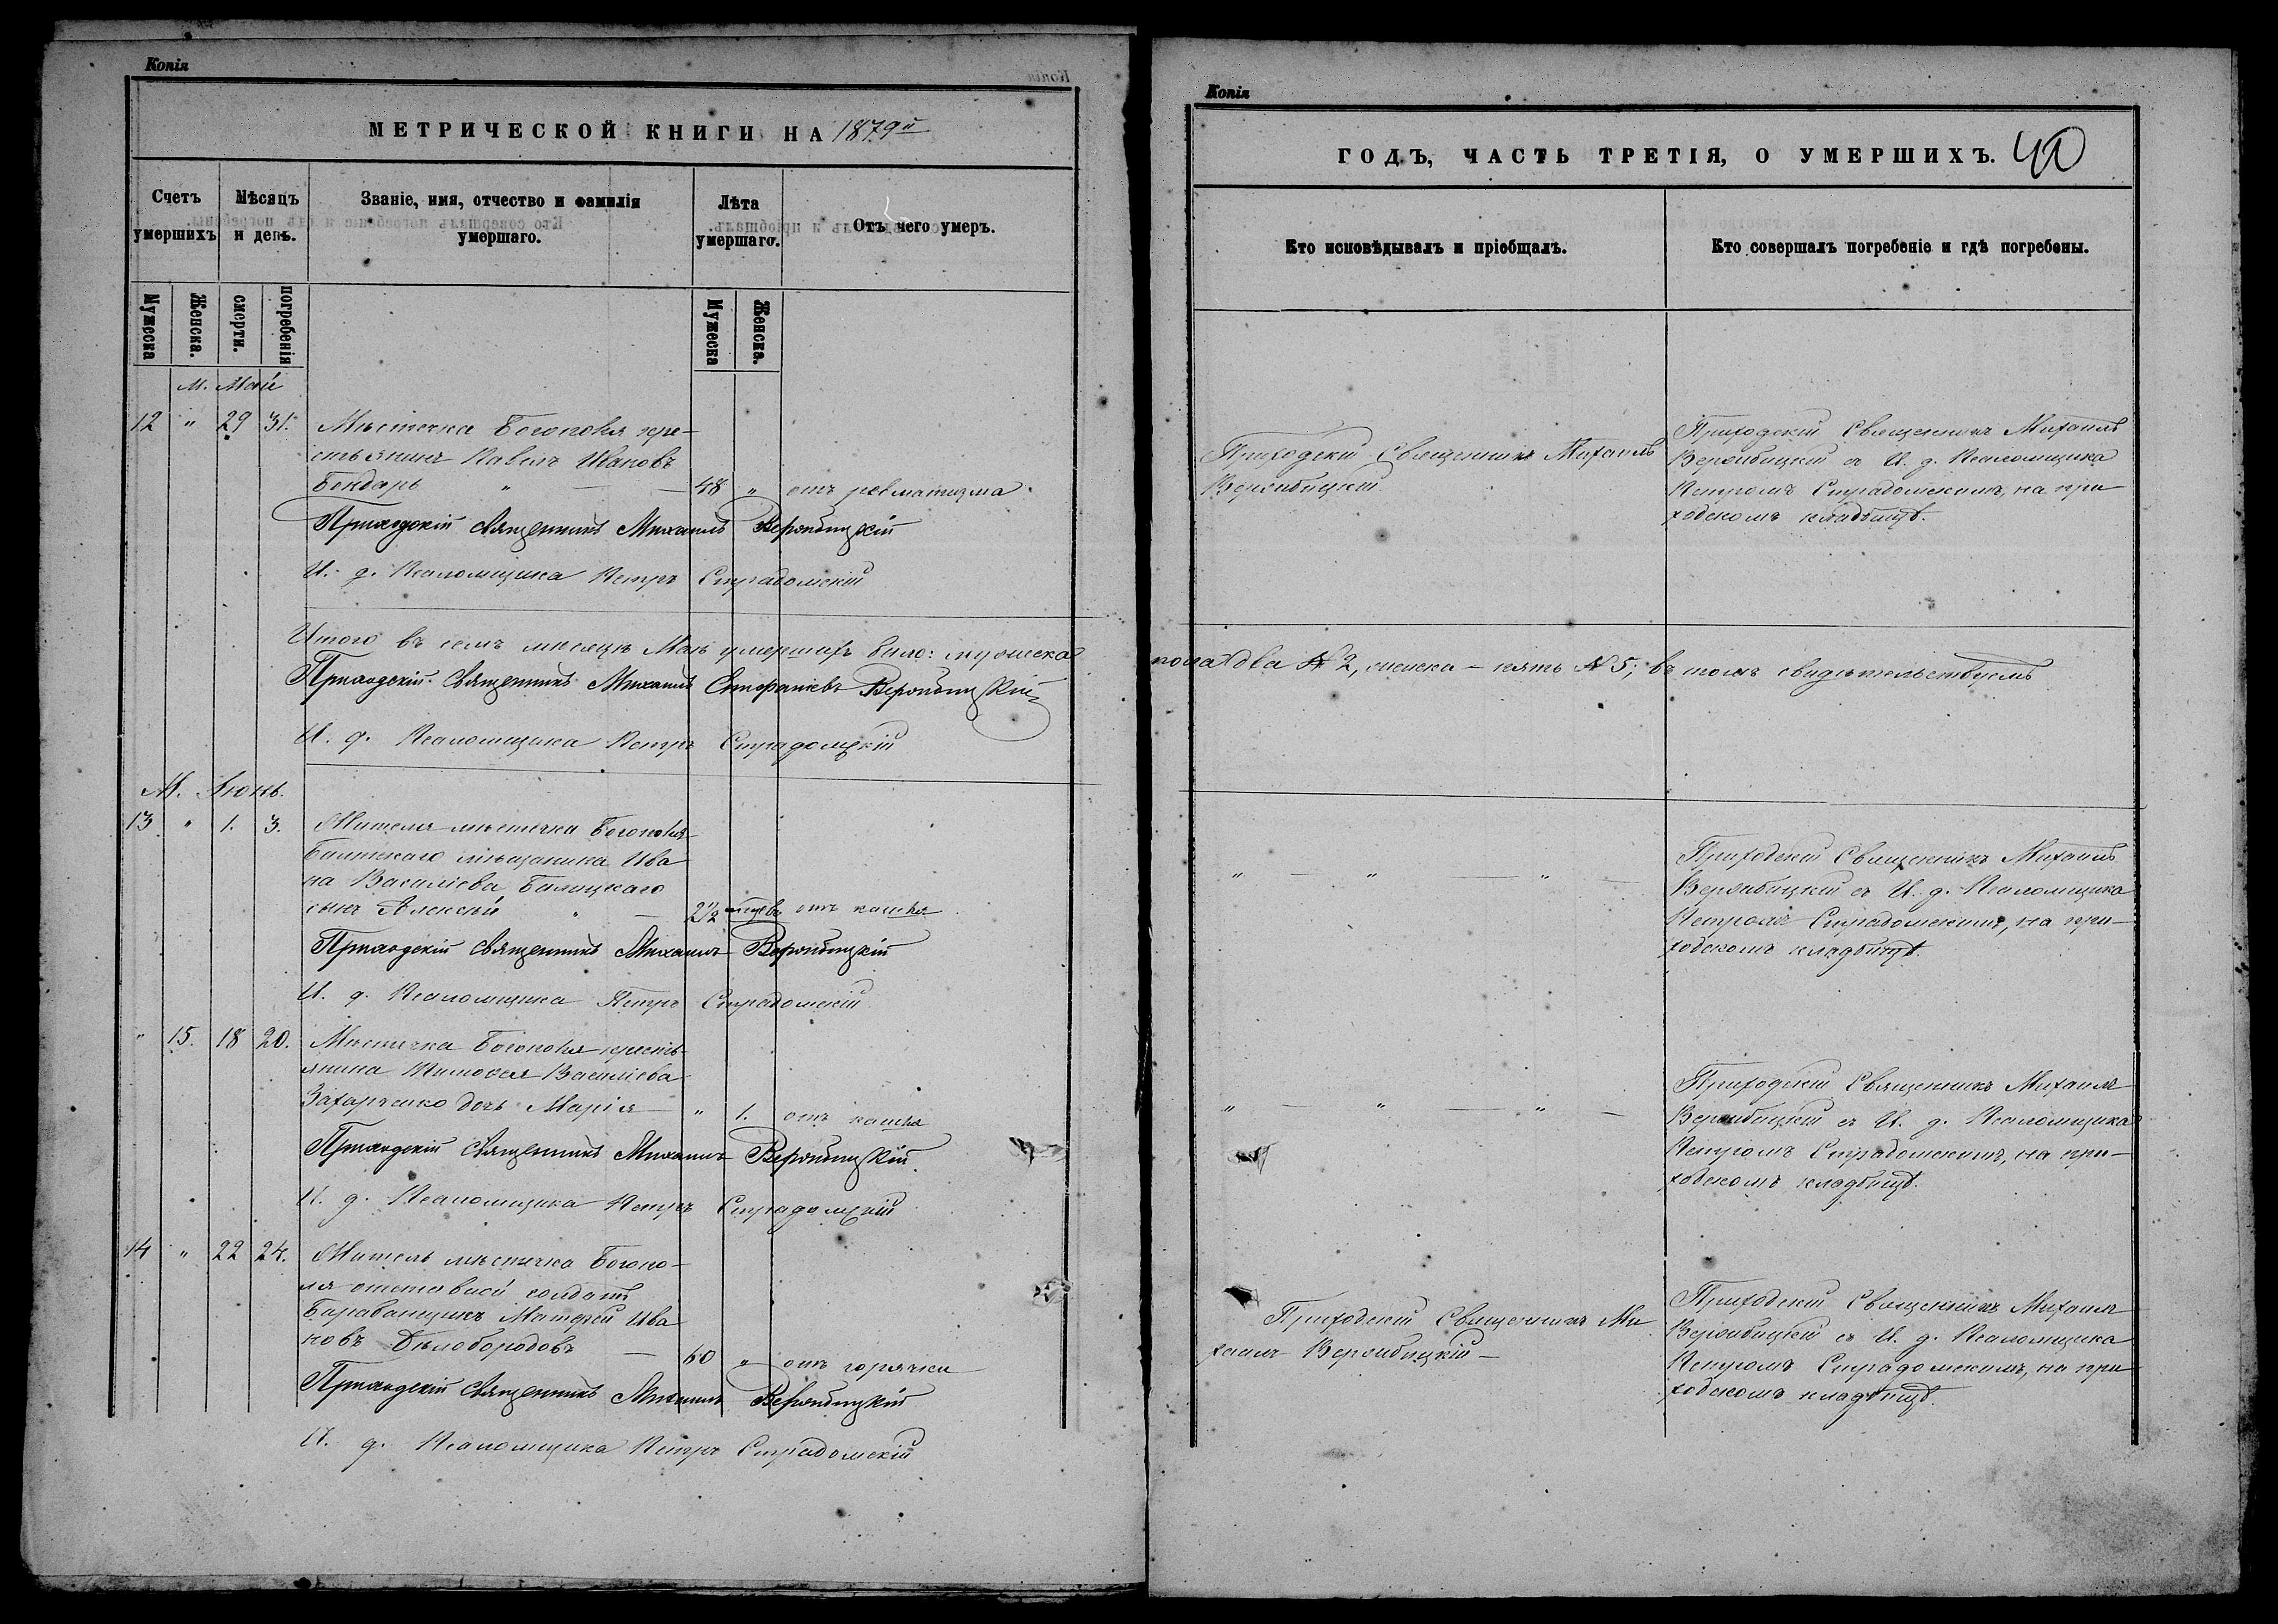 Копія
МЕТРИЧЕСКОЙ КНИГИ НА 1879й
Счетъ умершихъ
Мѣсяцъ и день.
Званіе, имя, отчество и фамилія умершаго.
Лѣта умершаго.
Отъ чего умеръ.
Мужеска
Женска.
смерти.
погребенія
Мужеска
Женска.
М. Май
12 " 29 31. Мѣстечка Богополя кре-
стьянинъ Павелъ Ивановъ
Бондарь " — — 48 " отъ ревматизма.
Приходскій Священникъ Михаилъ Вержбицкій
И. д. Псаломщика Петръ Страдомскій
Итого въ семъ мѣсяцѣ Маѣ умершихъ было: мужеска
Приходскій Священникъ Михаилъ Стефаніевъ Вержбицкій
И. д. Псаломщика Петръ Страдомскій
М. Іюнь.
13 " 1. 3. Жителя мѣстечка Богополя
Балтскаго мѣщанина Ива
на Василіева Балицкаго
сынъ Алексѣй " — 2½ мѣсяцев. отъ кашля
Приходскій Священникъ Михаилъ Вержбицкій
И. д. Псаломщика Петръ Страдомскій
" 15. 18 20. Мѣстечка Богополя кресть-
янина Тимофея Василіева
Захарченко дочь Марія — " 1. отъ кашля
Приходскій Священникъ Михаилъ Вержбицкій
И. д. Псаломщика Петръ Страдомскій
14 " 22 24. Житель мѣстечка Богопо-
ля отставной солдатъ
Барабанщикъ Матфей Ива
новъ Бѣлобородовъ — 60 " отъ горячки
Приходскій Священникъ Михаилъ Вержбицкій
И. д. Псаломщика Петръ Страдомскій
Копія
ГОДЪ, ЧАСТЬ ТРЕТІЯ, О УМЕРШИХЪ. 40
Кто исповѣдывалъ и пріобщалъ.
Кто совершалъ погребеніе и гдѣ погребены.
Приходскій Священникъ Михаилъ
Вержбицкій.
Приходскій Священникъ Михаилъ
Вержбицкій съ И. д. Псаломщика
Петромъ Страдомскимъ, на при
ходскомъ кладбищѣ.
пола два № 2, женска — пять № 5; въ томъ свидѣтельствуемъ
" — " — " —
Приходскій Священникъ Михаилъ
Вержбицкій съ И. д. Псаломщика
Петромъ Страдомскимъ, на при-
ходскомъ кладбищѣ.
" — " — " —
Приходскій Священникъ Михаилъ
Вержбицкій съ И. д. Псаломщика
Петромъ Страдомскимъ, на при-
ходскомъ кладбищѣ.
Приходскій Священникъ Ми
хаилъ Вержбицкій —
Приходскій Священникъ Михаилъ
Вержбицкій съ И. д. Псаломщика
Петромъ Страдомскимъ, на при
ходскомъ кладбищѣ.